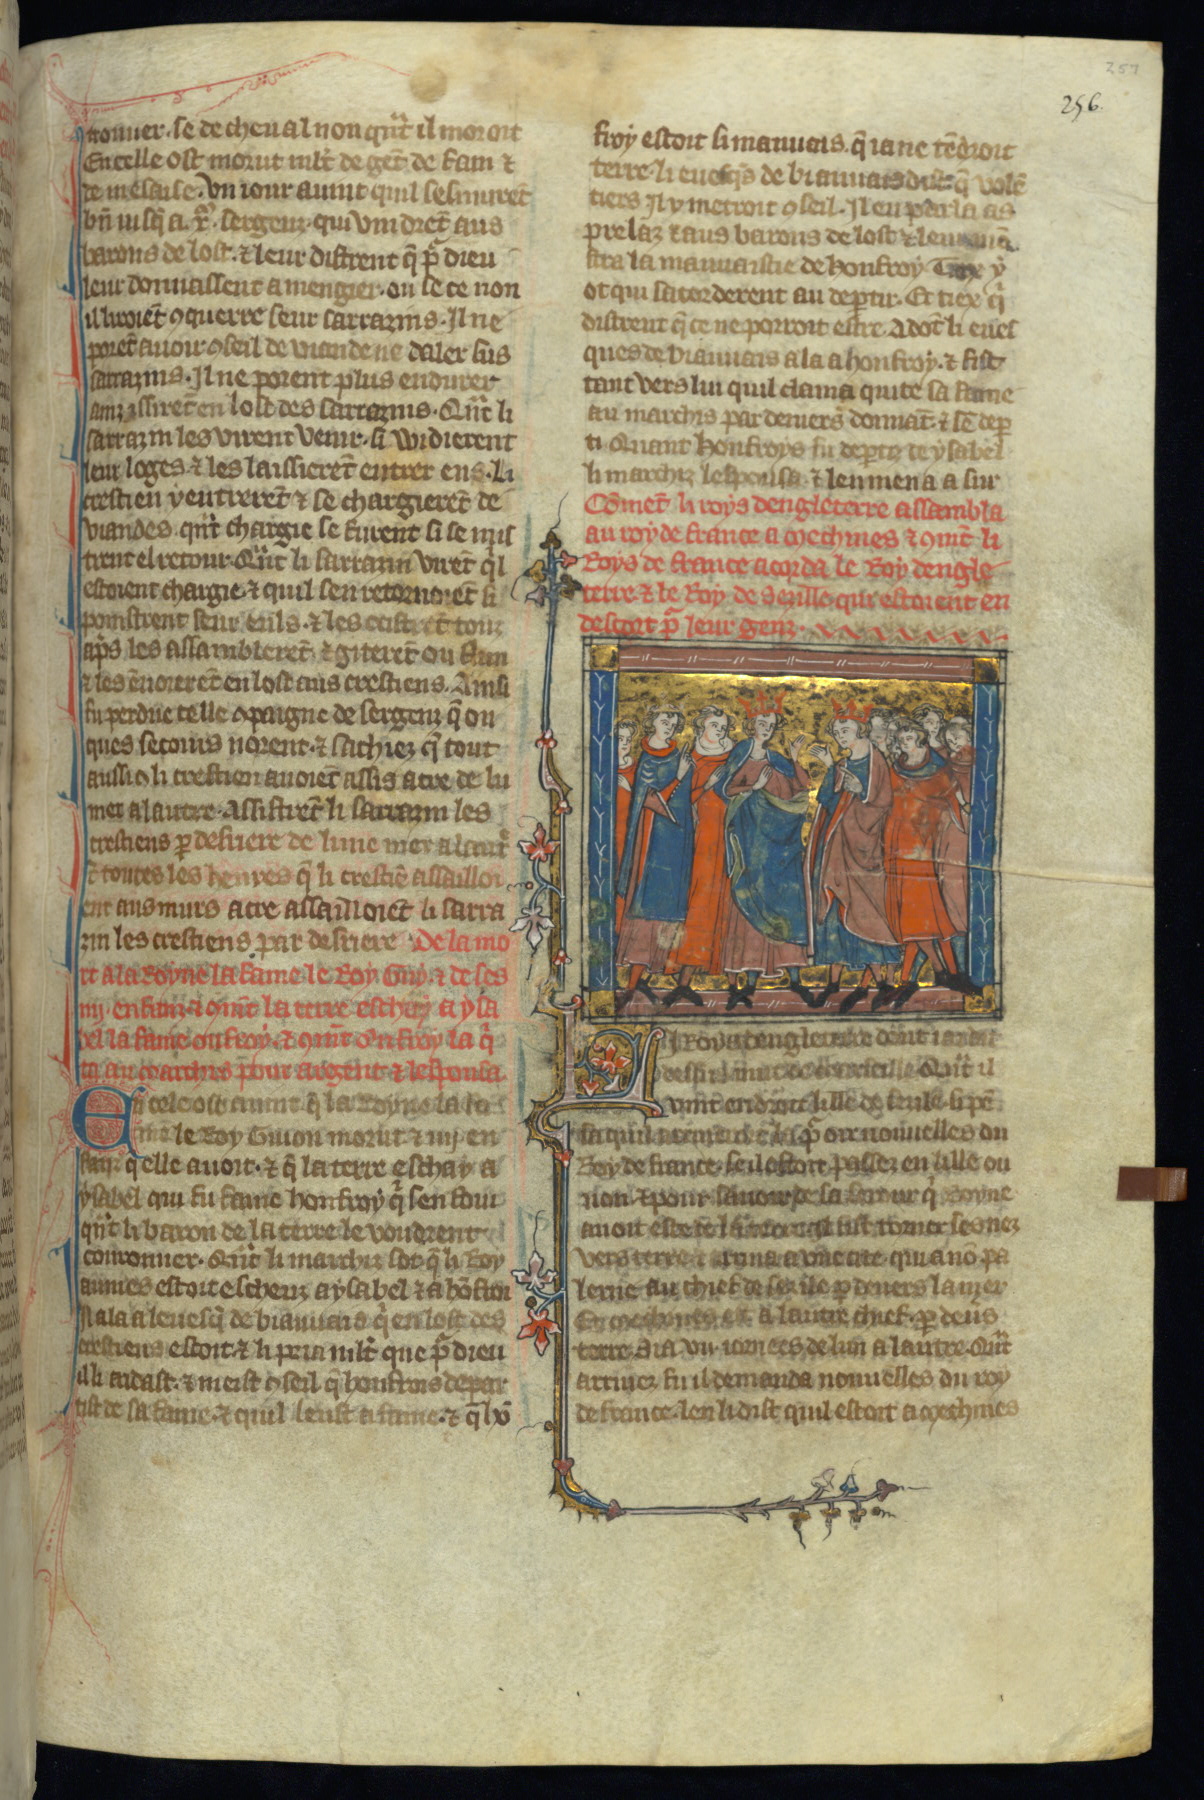 257
256
trouuer. se de cheual non qñt il moroit
En celle ost morut mlt de gẽt de fain ⁊
de mesaise. Vn iour auint quil sesmurẽt
bñ iusq̃ a .x. sergenz. qui vindrẽt aus
barons de lost. ⁊ leur distrent q̃ p̃ dieu
leur donnassent a mengier. ou se ce non
il iroiẽt 9querre seur sarrazins. Il ne
porẽt auoir 9seil de viande ne daler sus
sarrazins. Il ne porent plus endurer
ainz issirẽt en lost des sarrazins. Qñt li
sarrazin les virent venir. si widierent
leur loges. ⁊ les laissierẽt entrer ens. Li
crestien y entrerẽt ⁊ se chargierẽt de
viandes. qñt chargie se furent si se mis
trent el retour. Qñt li sarrazin virẽt q̃l
estoient chargie. ⁊ quil sen retornoiẽt si
poinstrent seur euls. ⁊ les
ap̃s les assamblerẽt. ⁊ giterẽt ou flun
⁊ les ẽuoierẽt en lost aus crestiens. Ainsi
fu perdue celle 9paigne de sergenz q̃ on
ques secours norent. ⁊ sachiez q̃ tout
aussi 9 li crestien auoiẽt assis acre de lu
mer a lautre. Assistrẽt li sarrazin les
crestiens p derriere de lune mer a lautr̃
⁊ toutes les heures q̃ li crestiẽ assailloi
ent aus murs acre assailloiẽt li sarra
zin les crestiens par derriere De la mo
rt a la Royne la fame le Roy Guy. ⁊ de ses
.iiij. enfanz ⁊ 9mẽt la terre escheÿ a ysa
bel la fame onfroy. ⁊ 9mẽt Onfroy la q̃
ta au marchis pour argent ⁊ lespousa.
En cele ost auint q̃ la Royne la fa
me le Roy Guion morut ⁊ .iiij. en
fanz q̃ elle auoit. ⁊ q̃ la terre eschaÿ a
ysabel qui fu fame honfroy q̃ sen foui
qñt li baron de la terre le voudrent
couronner. Qñt li marchiz sot q̃ li Roy
aumes estoit escheuz a ysabel ⁊ a hõfroi
Il ala a leuesq̃ de biauuais q̃ en lost des
crestiens estoit. ⁊ li pria mlt que p̃ dieu
il li aidast. ⁊ meist 9seil q̃ honfrois depar
tist de sa fame. ⁊ quil leust a fame. ⁊ q̃ hõ
froy estoit si mauuais. q̃ ia ne tẽdroit
terre. li euesq̃s de biauuais dist q̃ volẽ
tiers il y metroit 9seil. Il en parla as
prelaz ⁊ aus barons de lost ⁊ leur
stra la mauuaistie de honfroy y
ot qui sacorderent au departir. Et tiex q̃
distrent q̃ ce ne porroit estre. Adõt li eues
ques de biauuais ala a honfroy. ⁊ fist
tant vers lui quil clama quite sa fame
au marchis par deniers donnãt. ⁊ sẽ dep
ti. Quant honfroys fu departiz de ysabel
li marchiz lespousa. ⁊ len mena a sur
Cõmẽt li roys dengleterre assambla
au roy de france a mechines ⁊ 9mẽt li
Roys de france acorda le Roy dengle
terre ⁊ le Roy de Sezille qui estoient en
descort p̃ leur genz.
Li Roys dengleterre

vint endroit lille de sezile si pẽ
sa quil nouuelles du
Roy de france. seil estoit passez en lille ou
non. ⁊ pour sauoir se sa serour q̃ Royne
auoit este de la terre. fist torner ses nez
vers terre ⁊ ariua a vne cite. qui a nõ pa
lerne au chief de sezile p deuers la mer
En mechines est a lautre chief. p deus
terre. Si a vii. iornees de lun a lautre. Qñt
arriuez fu il demanda nouuelles du roy
de france. len li dist quil estoit a mechines